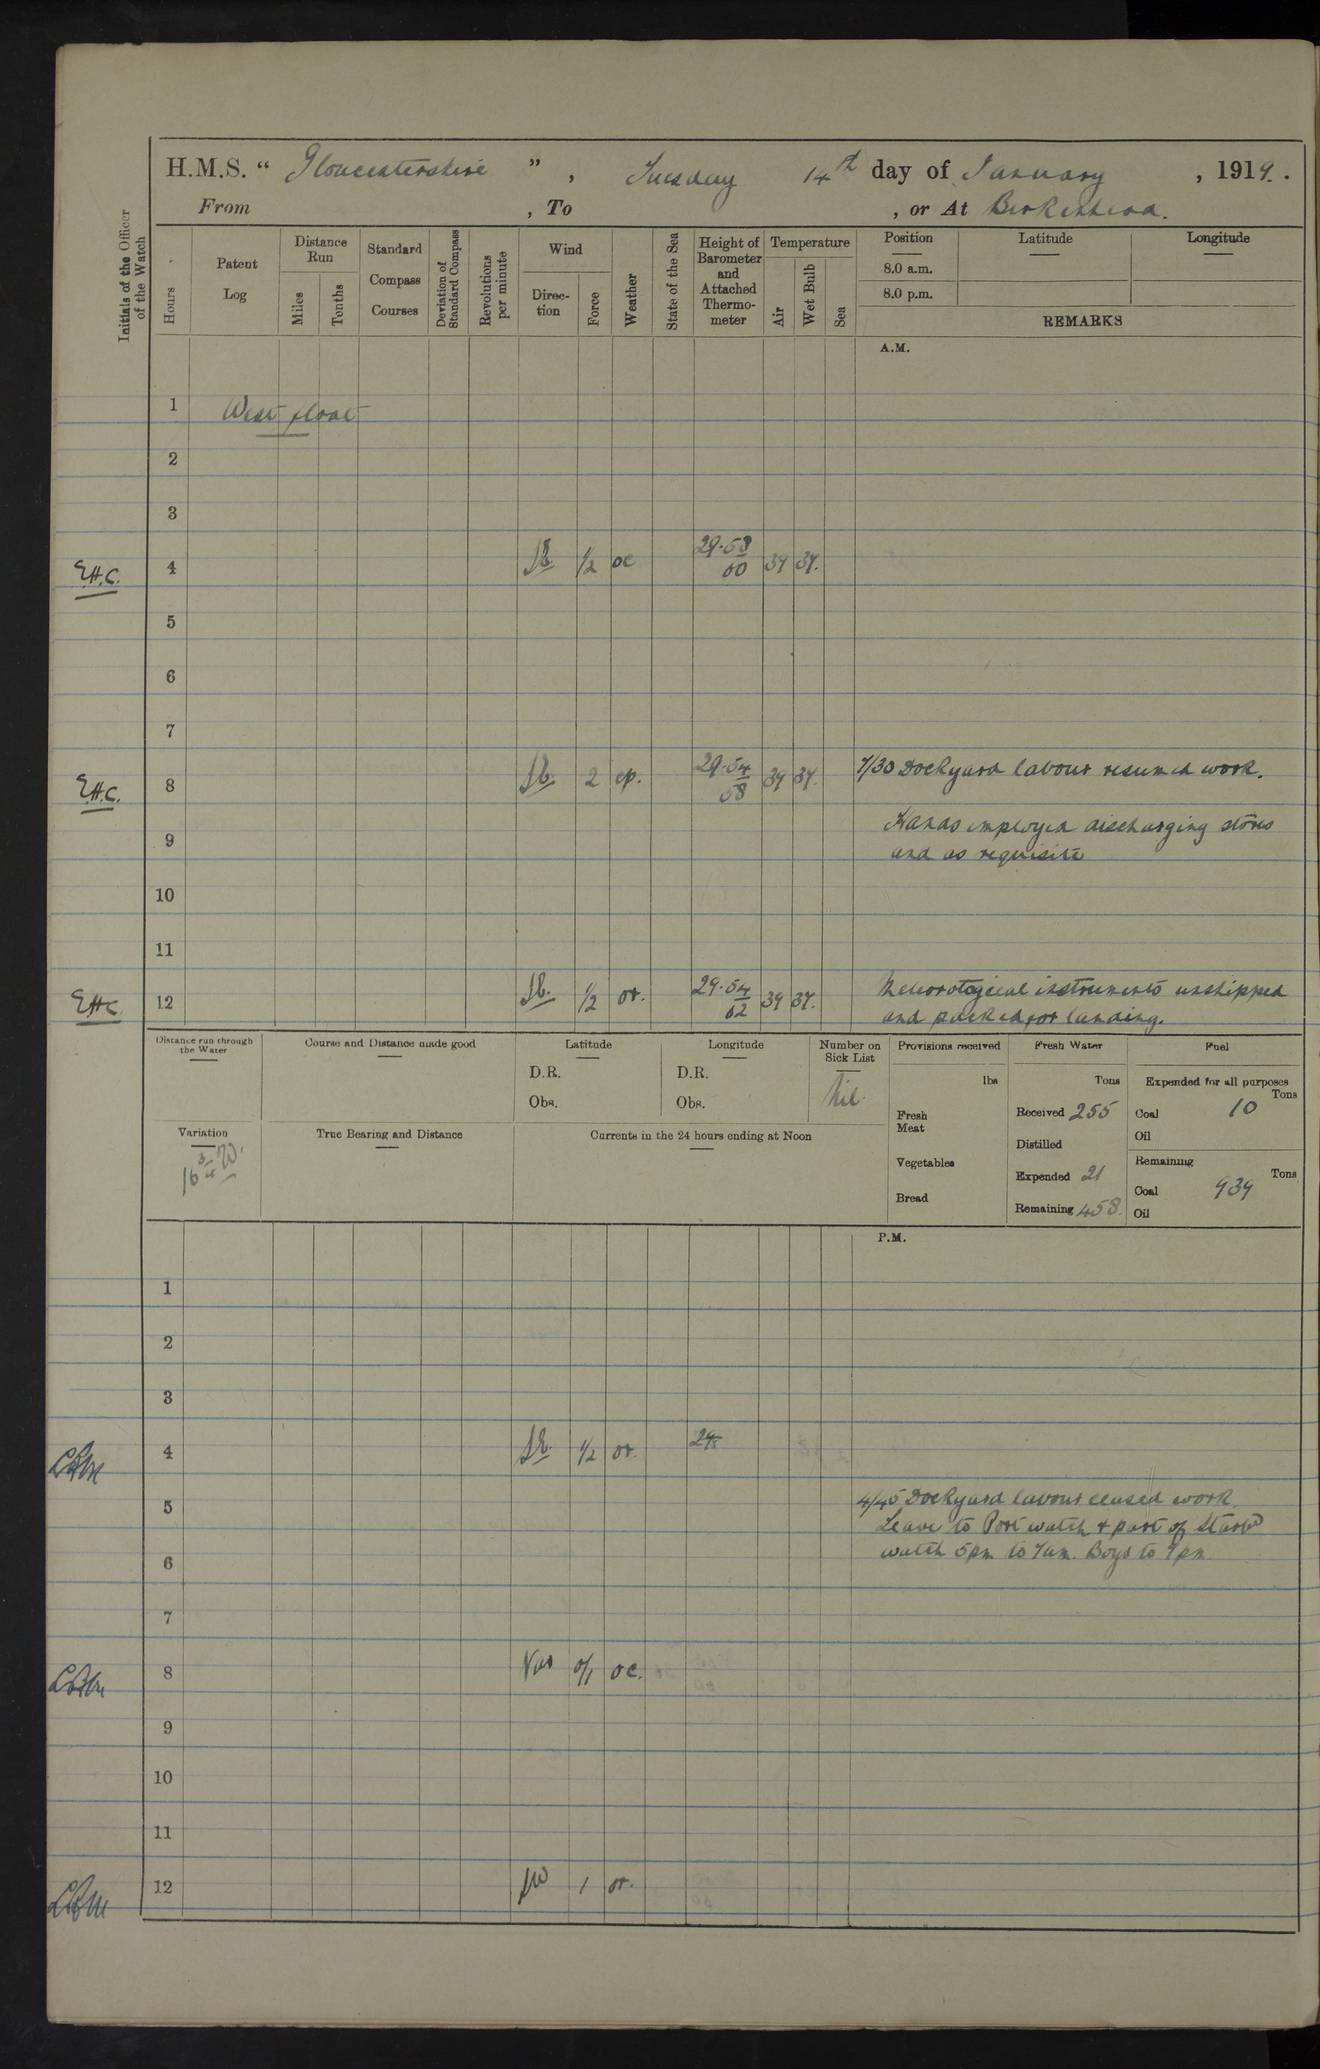 H.M.S. “ Gloucestershire ” , Tuesday 14th day of January , 1919 .
From , To , or At Birkenhead.
Initials of the Officer of the Watch
Hours
Patent Log
Distance Run
Miles
Tenths
Standard Compass Courses
Deviation of Standard Compass
Revolutions per minute
Wind
Direction
Force
Weather
State of the Sea
Height of Barometer and Attached Thermometer
Temperature
Air
Wet Bulb
Sea
Position Latitude Longitude
8.0 a.m.
8.0 p.m.
REMARKS
A.M.
1 West float
2
3
E.H.C. 4 SE. 1/2 oc 29.58 60 39 37.
5
6
7
E.H.C. 8 SE. 2 cp. 29.54 58 39 37. 7/30 Dockyard labour resumed work.
9 Hands employed discharging stores
and as requisite
10
11
E.H.C. 12 SE. 1/2 or. 29.54 62 39 37. Meteorological instruments unshipped
and packed for landing.
Distance run through the Water
Course and Distance made good
Latitude
D.R.
Obs.
Longitude
D.R.
Obs.
Number on Sick List
Nil.
Provisions received
lbs
Fresh Meat
Vegetables
Bread
Fresh Water
Tons
Received 255
Distilled
Expended 21
Remaining 458.
Fuel
Expended for all purposes
Tons
Coal 10
Oil
Remaining
Tons
Coal 939
Oil
Variation
16 3/4 W.
True Bearing and Distance
Currents in the 24 hours ending at Noon
P.M.
1
2
3
4 SE. 1/2 or.
5 4/45 Dockyard labour ceased work.
Leave to Port watch & part of Starbd
6 watch 5pm to 7am. Boys to 9pm.
7
8 Var 0/1 oc.
9
10
11
12 SW 1 or.